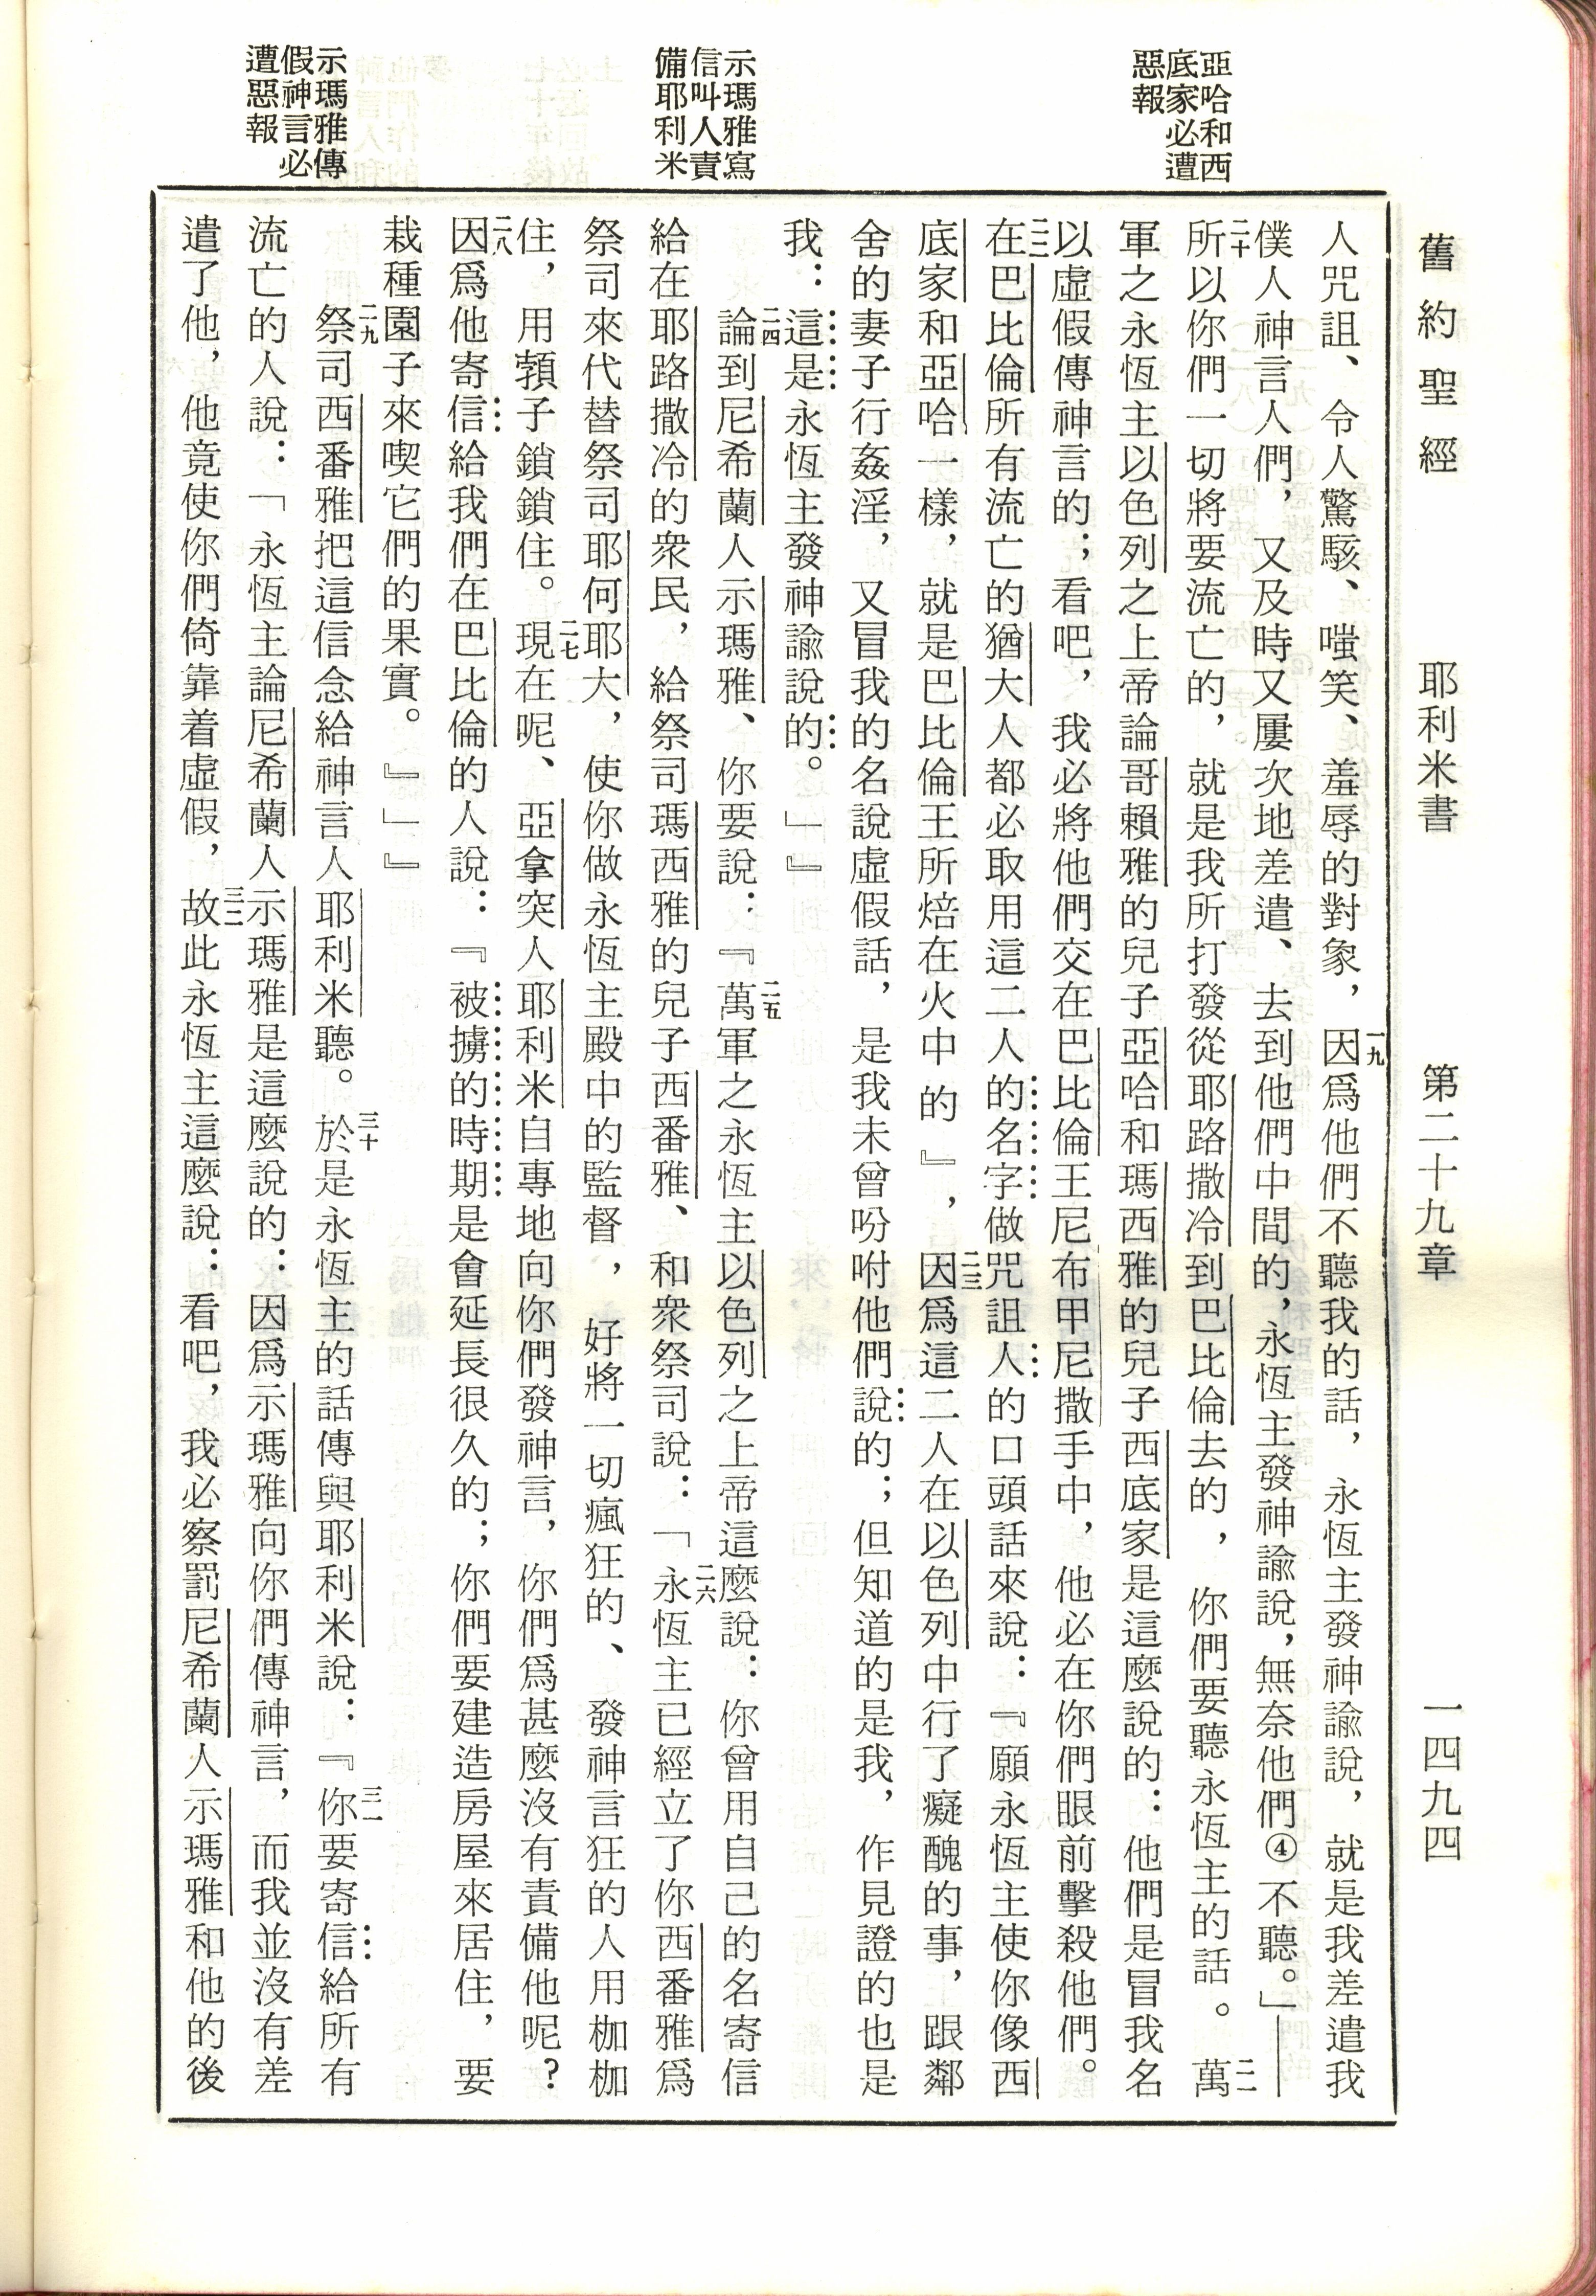 舊約聖經　耶利米書　第二十九章　一四九四
亞哈和西
底家必遭
惡報
示瑪雅寫
信叫人責
備耶利米
示瑪雅傳
假神言必
遭惡報
人咒詛、令人驚駭、嗤笑、羞辱的對象，一九因爲他們不聽我的話，永恆主發神諭說，就是我差遣我
僕人神言人們，又及時又屢次地差遣、去到他們中間的，永恆主發神諭說，無奈他們④不聽。」——
二十所以你們一切將要流亡的，就是我所打發從耶路撒冷到巴比倫去的，你們要聽永恆主的話。二一萬
軍之永恆主以色列之上帝論哥賴雅的兒子亞哈和瑪西雅的兒子西底家是這麼說的：他們是冒我名
以虛假傳神言的；看吧，我必將他們交在巴比倫王尼布甲尼撒手中，他必在你們眼前擊殺他們。
二二在巴比倫所有流亡的猶大人都必取用這二人的名字做咒詛人的口頭話來說：『願永恆主使你像西
底家和亞哈一樣，就是巴比倫王所焙在火中的』，二三因爲這二人在以色列中行了癡醜的事，跟鄰
舍的妻子行姦淫，又冒我的名說虛假話，是我未曾吩咐他們說的；但知道的是我，作見證的也是
我：這是永恆主發神諭說的。」』
二四論到尼希蘭人示瑪雅、你要說：『二五萬軍之永恆主以色列之上帝這麼說：你曾用自己的名寄信
給在耶路撒冷的衆民，給祭司瑪西雅的兒子西番雅、和衆祭司說：「二六永恆主已經立了你西番雅爲
祭司來代替祭司耶何耶大，使你做永恆主殿中的監督，好將一切瘋狂的、發神言狂的人用枷枷
住，用顇子鎖鎖住。二七現在呢、亞拿突人耶利米自專地向你們發神言，你們爲甚麼沒有責備他呢？
二八因爲他寄信給我們在巴比倫的人說：『被擄的時期是會延長很久的；你們要建造房屋來居住，要
栽種園子來喫它們的果實。』」』
二九祭司西番雅把這信念給神言人耶利米聽。三十於是永恆主的話傳與耶利米說：『三一你要寄信給所有
流亡的人說：「永恆主論尼希蘭人示瑪雅是這麼說的：因爲示瑪雅向你們傳神言，而我並沒有差
遣了他，他竟使你們倚靠着虛假，三二故此永恆主這麼說：看吧，我必察罰尼希蘭人示瑪雅和他的後